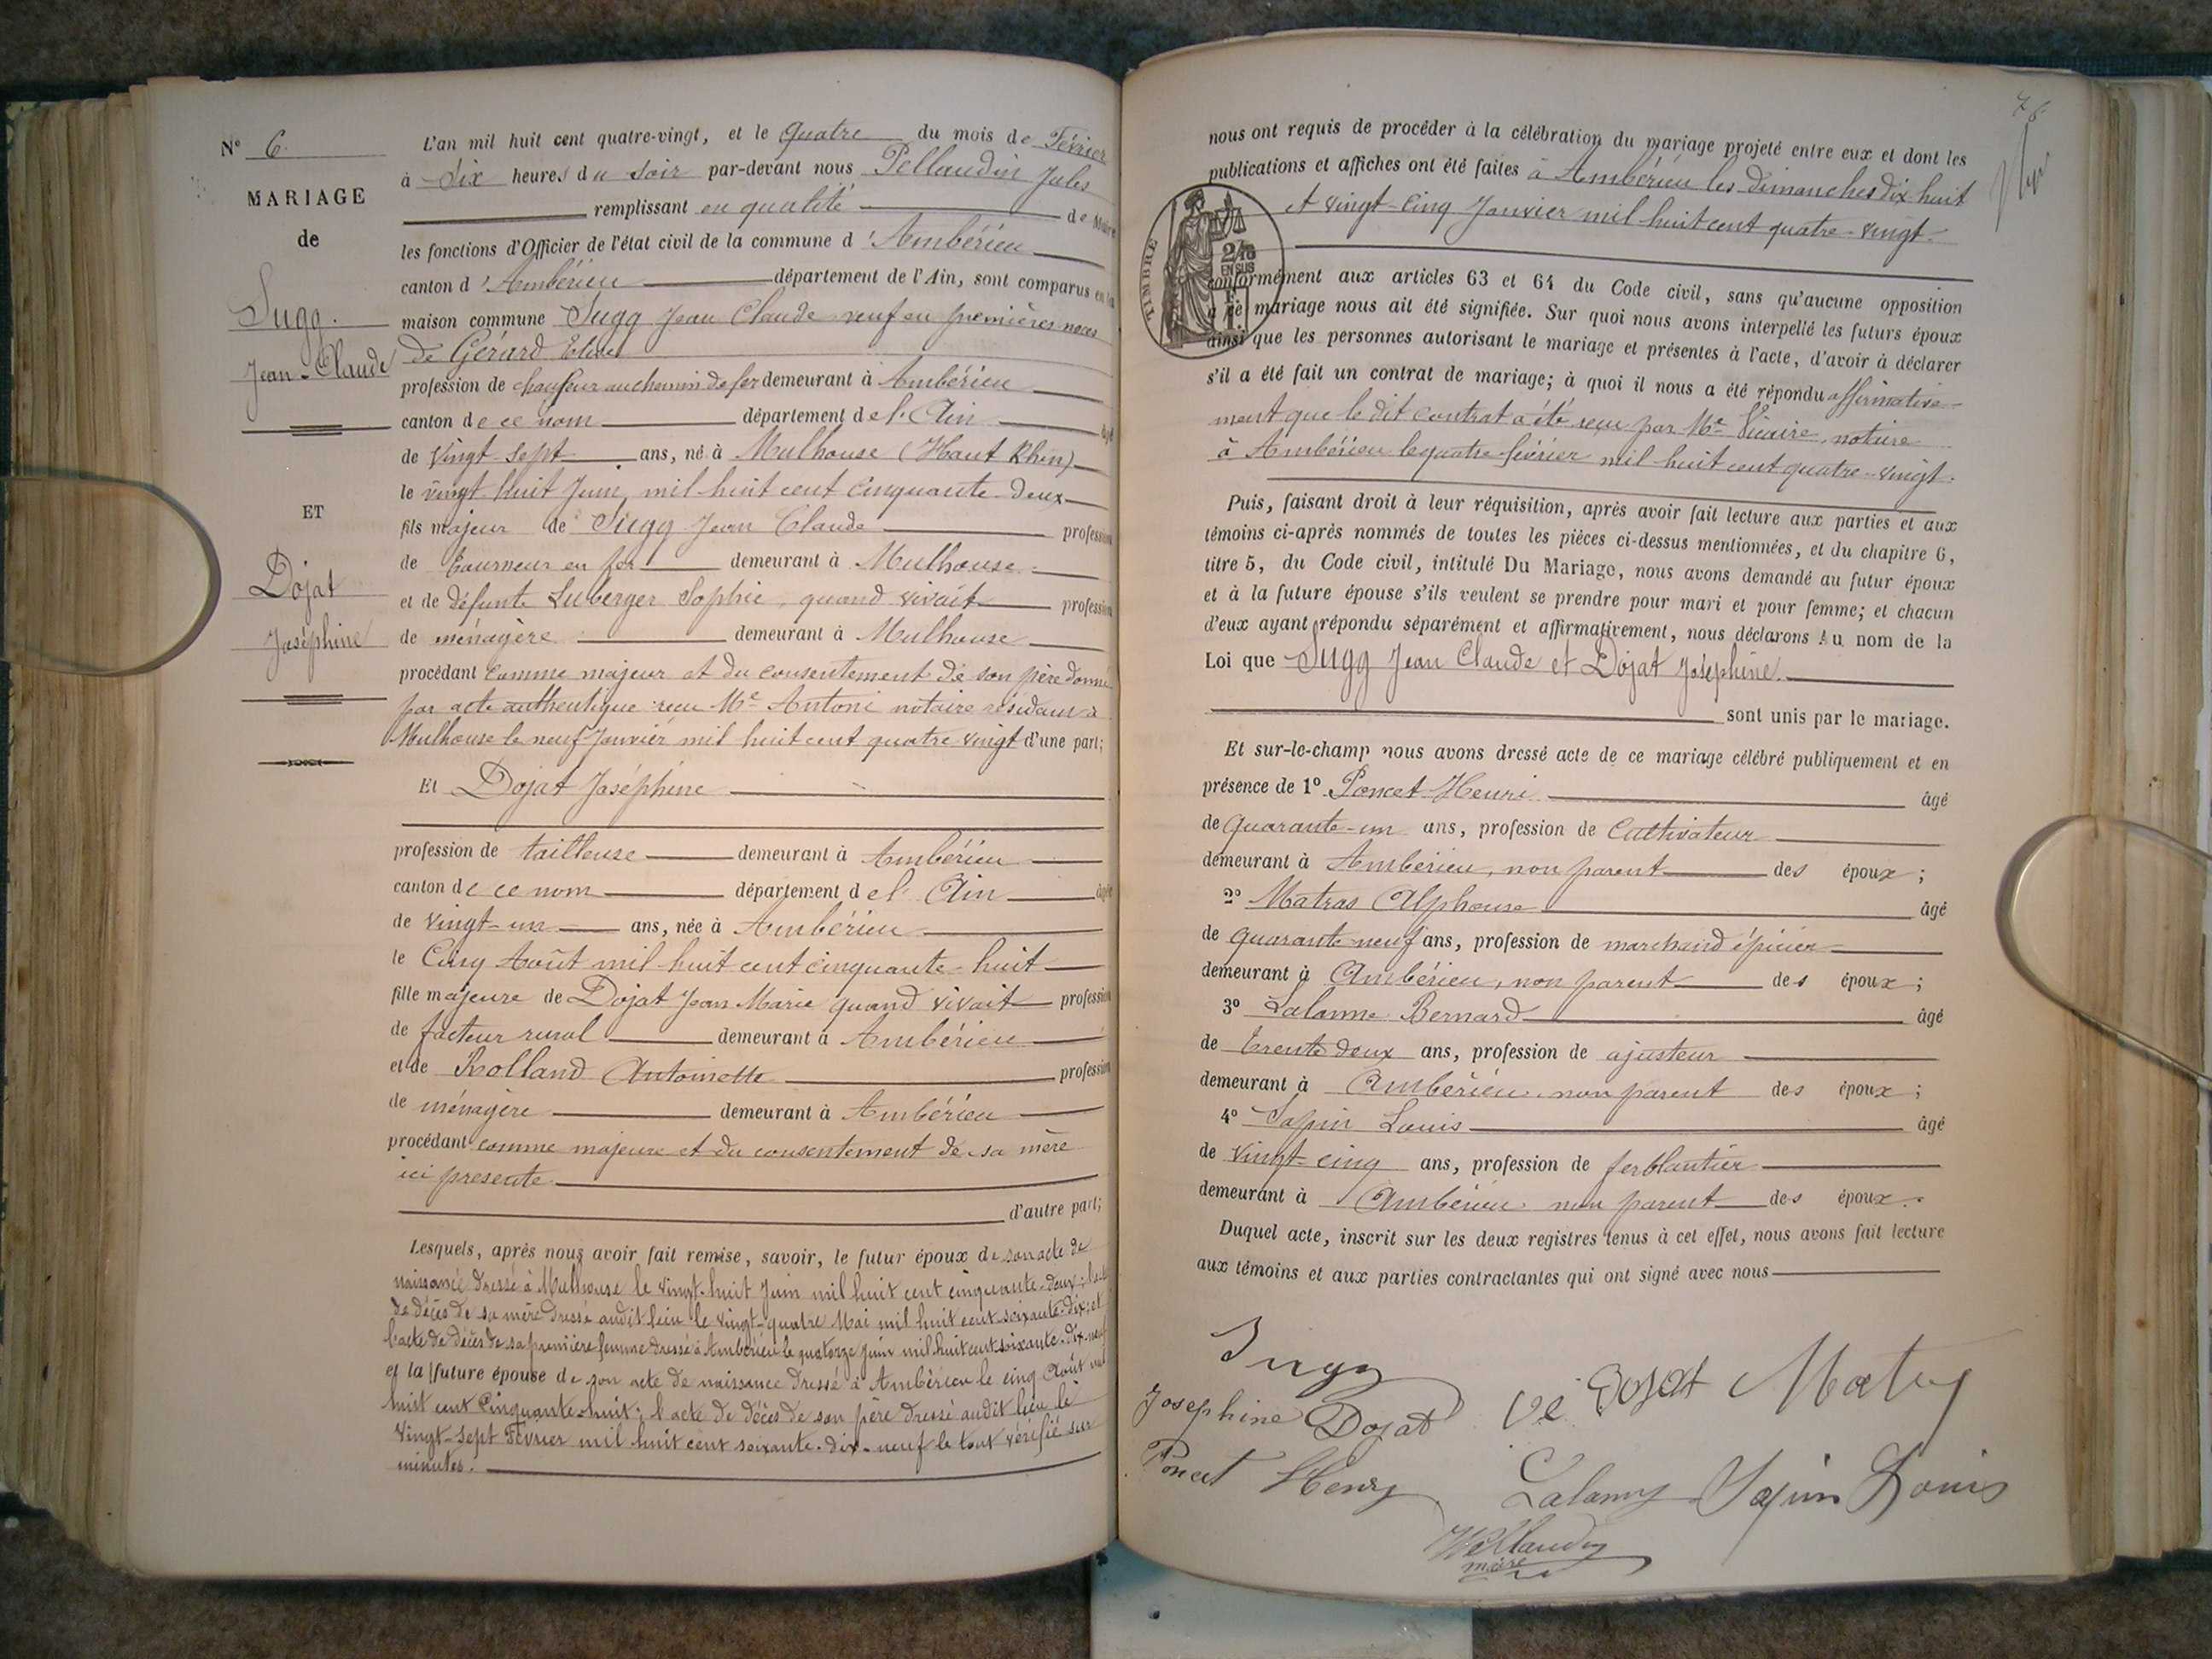 N° 6.
MARIAGE
de
Sugg.
Jean-Claude
ET
Dojat
Joséphine
L'an mil huit cent quatre-vingt, et le quatre du mois de Février
à Six heures du soir par-devant nous Pellaudin Jules
remplissant en qualité de Maire
les fonctions d'Officier de l'état civil de la commune d'Ambérieu
canton d'Ambérieu département de l'Ain, sont comparus en la
maison commune Sugg Jean Claude veuf en premières noces
de Gérard Elise
profession de chauffeur au chemin de fer demeurant à Ambérieu
canton de ce nom département de l'Ain âgé
de vingt-sept ans, né à Mulhouse (Haut Rhin)
le vingt-huit Juin, mil-huit cent cinquante-deux
fils majeur de Sugg Jean Claude profession
de tourneur en fer demeurant à Mulhouse
et de défunte Luberger Sophie, quand vivait profession
de ménagère demeurant à Mulhouse
procédant comme majeur et du consentement de son père donné
par acte authentique reçu Me Antoni notaire résidant à
Mulhouse le neuf Janvier mil huit cent quatre vingt d'une part;
Et Dojat Joséphine
profession de tailleuse demeurant à Ambérieu
canton de ce nom département de l'Ain âgée
de vingt-un ans, née à Ambérieu
le Cinq Août mil-huit cent cinquante-huit
fille majeure de Dojat Jean Marie quand vivait profession
de facteur rural demeurant à Ambérieu
et de Rolland Antoinette profession
de ménagère demeurant à Ambérieu
procédant comme majeure et du consentement de sa mère
ici presente
d'autre part;
Lesquels, après nous avoir fait remise, savoir, le futur époux de son acte de
naissance dressé à Mulhouse le vingt-huit Juin mil huit cent cinquante-deux;
de décès de sa mère dressé audit lieu le vingt-quatre Mai mil huit cent soixante-dix; et
l'acte de décès de sa première femme dressé à Ambérieu le quatorze juin mil huit cent soixante-dix-neuf
et la future épouse de son acte de naissance dressé à Ambérieu le cinq Août mil
huit cent Cinquante-huit; l'acte de décès de son père dressé audit lieu le
vingt-sept Février mil huit cent soixante-dix-neuf le tout vérifié sur
minutes.
nous ont requis de procéder à la célébration du mariage projeté entre eux et dont les
publications et affiches ont été faites à Ambérieu les dimanches dix-huit
et vingt-cinq Janvier mil huit cent quatre-vingt.
TIMBRE
2/10
EN SUS
conformément aux articles 63 et 64 du Code civil, sans qu'aucune opposition
à ce mariage nous ait été signifiée. Sur quoi nous avons interpellé les futurs époux
ainsi que les personnes autorisant le mariage et présentes à l'acte, d'avoir à déclarer
s'il a été fait un contrat de mariage; à quoi il nous a été répondu affirmative-
ment que le dit contrat a été reçu par Me Vicaire, notaire
à Ambérieu le quatre février mil huit cent quatre-vingt.
Puis, faisant droit à leur réquisition, après avoir fait lecture aux parties et aux
témoins ci-après nommés de toutes les pièces ci-dessus mentionnées, et du chapitre 6,
titre 5, du Code civil, intitulé Du Mariage, nous avons demandé au futur époux
et à la future épouse s'ils veulent se prendre pour mari et pour femme; et chacun
d'eux ayant répondu séparément et affirmativement, nous déclarons Au nom de la
Loi que Sugg Jean Claude et Dojat Joséphine.
sont unis par le mariage.
Et sur-le-champ nous avons dressé acte de ce mariage célébré publiquement et en
présence de 1° Poncet Henri âgé
de quarante-un ans, profession de Cultivateur
demeurant à Ambérieu, non parent des époux;
2° Matras Alphonse âgé
de quarante neuf ans, profession de marchand épicier
demeurant à Ambérieu, non parent des époux;
3° Lalanne Bernard âgé
de trente deux ans, profession de ajusteur
demeurant à Ambérieu, non parent des époux;
4° Sapin Louis âgé
de vingt-cinq ans, profession de ferblantier
demeurant à Ambérieu non parent des époux.
Duquel acte, inscrit sur les deux registres tenus à cet effet, nous avons fait lecture
aux témoins et aux parties contractantes qui ont signé avec nous
Sugg
Josephine Dojat Ve Dojat
Poncet Henry Lalanne Sapin Louis
Pellaudin
maire